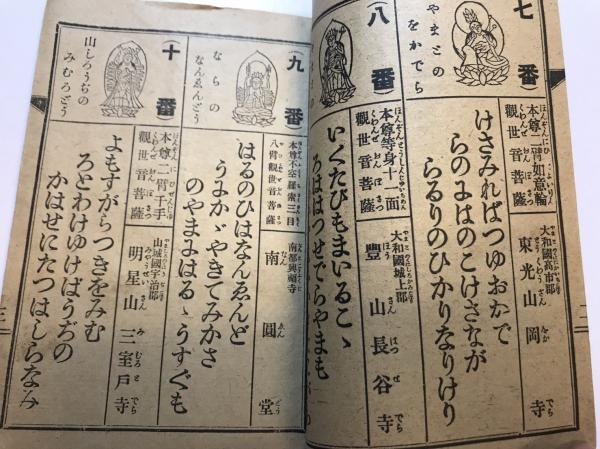 七番
やまとの
をかでら
本尊二臂如意輪
觀世音菩薩
大和國高市郡
東光山岡寺
けさみればつゆおかで
らのにはのこけさながら
らるりのひかりなりけり
八番
本尊等身十一面
觀世音菩薩
大和國城上郡
豐山長谷寺
いくたびもまいるこゝ
ろははつせでらやまも
九番
ならの
なんゑんどう
本尊不空羂索三目
八臂觀世音菩薩
南都興福寺
南圓堂
はるのひはなんゑんど
うにかゞやきてみかさ
のやまにはるゝうすぐも
十番
山しろうぢの
みむろどう
本尊二臂千手
觀世音菩薩
山城國宇治郡
明星山三室戸寺
よもすがらつきをみむ
ろとわけゆけばうぢの
かはせにたつはしらなみ
三